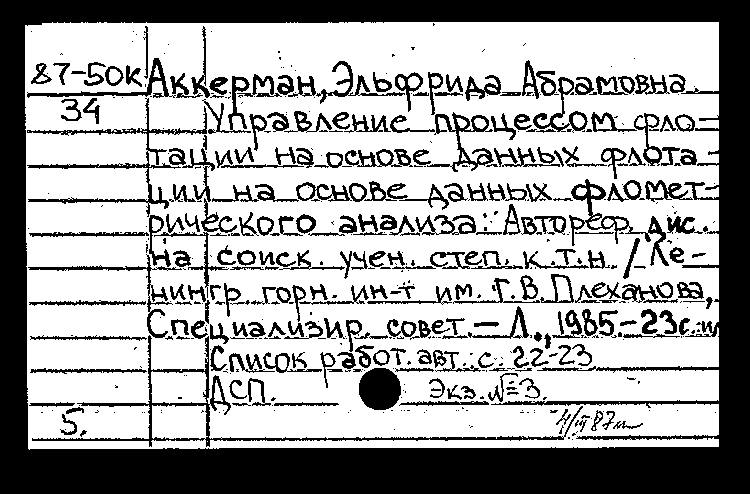 87-50к Аккерман, Эльфрида Абрамовна.
34 Управление процессом фло-
тации на основе данных флота-
ции на основе данных фломет-
рического анализа: Автореф. дис.
на соиск. учен. степ. к.т.н. / Ле-
нингр. горн. ин-т им. Г.В. Плеханова,
Специализир. совет. — Л., 1985. - 23с.: ил
Список работ. авт.: с. 22-23
ДСП. Экз. № 3.
5. 4/III 87